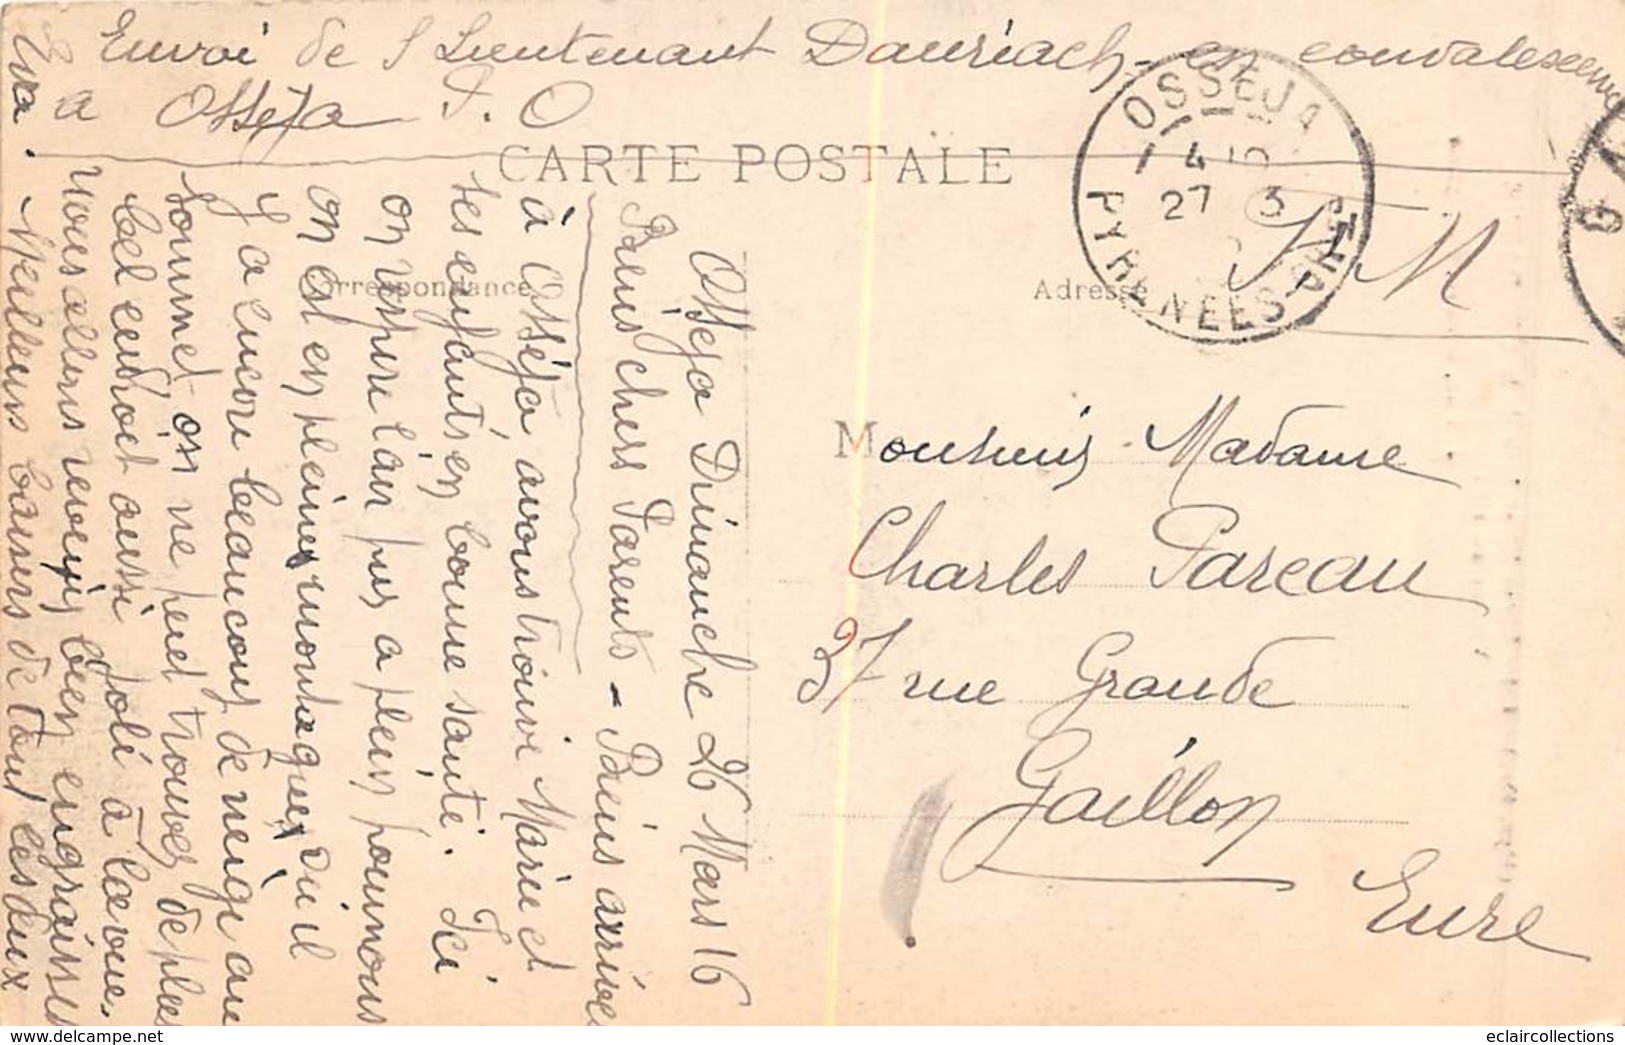 Envoi de S Lieutenant Dauriach en convalescence
a Osséja P. O
CARTE POSTALE
OSSEJA
4
27 3
PYRENEES-ORIENT
F M
Correspondance
Adresse
Osséja Dimanche 26 Mars 16
Biens chers Parents - Biens arrivée
à Osséja avons trouvé Marie et
les enfants en bonne santé. Ici
on respire l'air pur a plein poumons
on est en pleines montagnes où il
y a encore beaucoup de neige au
sommet on ne peut trouver de plus
bel endroit aussi joli à la vue.
Nous allons revenir bien engraisses
Meilleurs baisers de tout les deux
Eva.
Monsieur Madame
Charles Pareau
37 rue Grande
Gaillon
Eure
eclaircollections